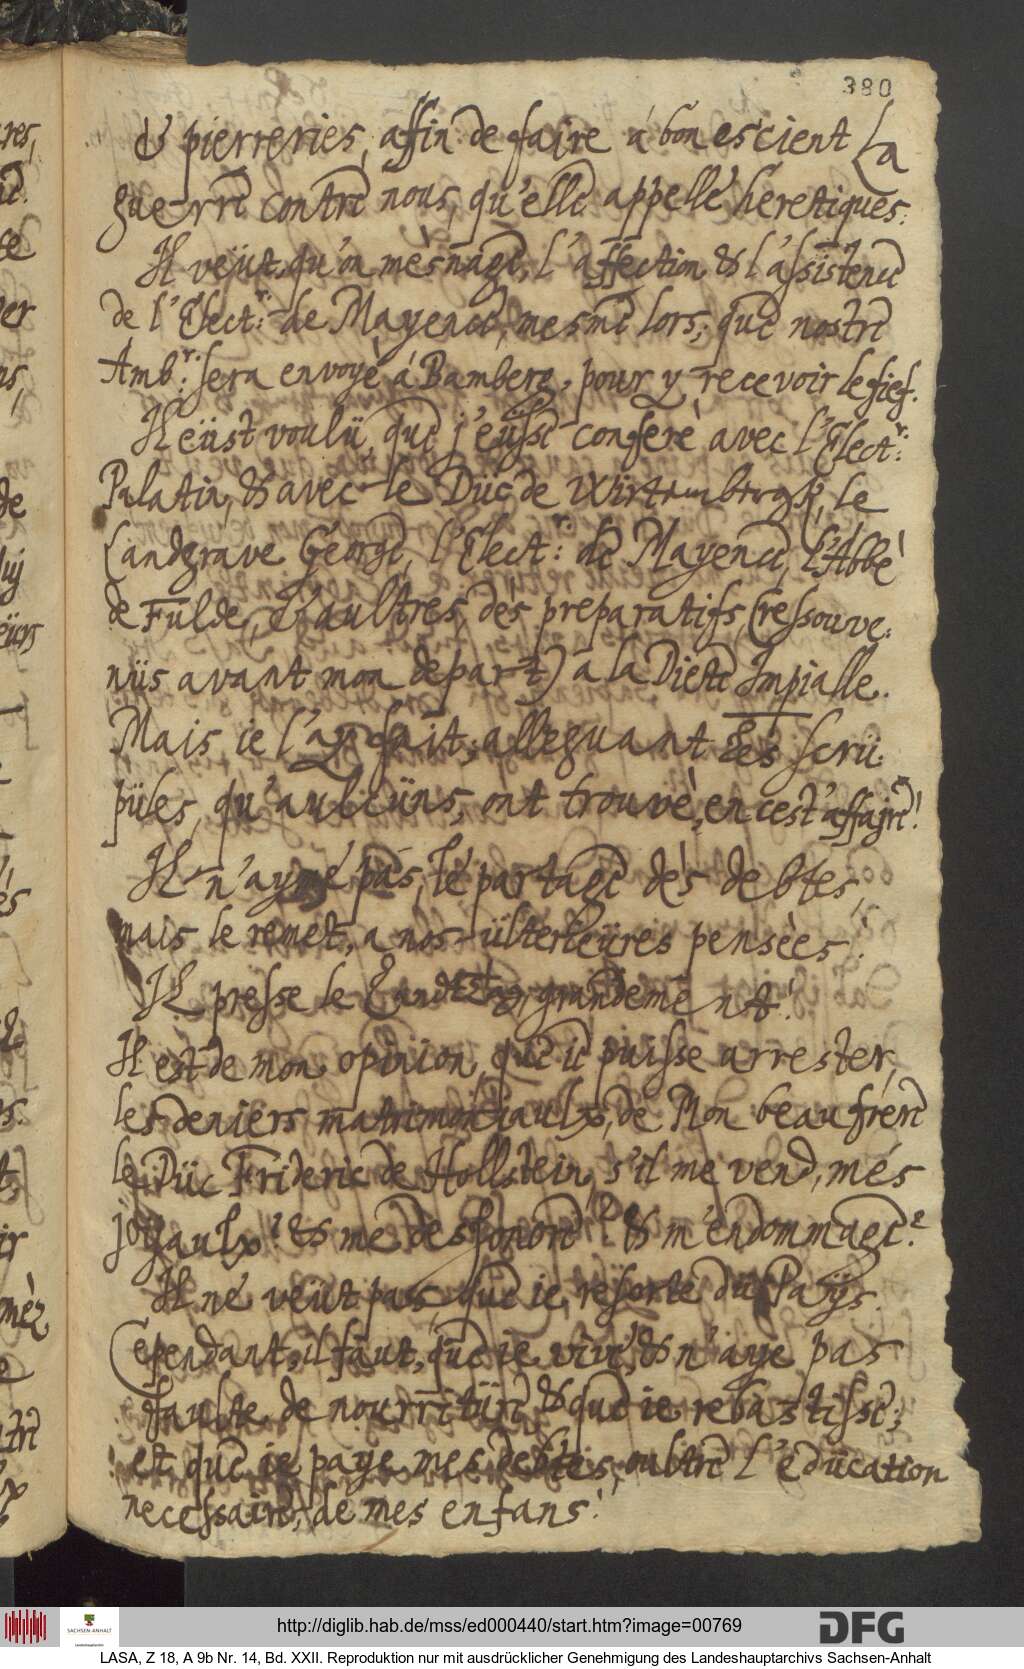 380
& pierreries, affin de faire a bon escient la
guerre contre nous, qu'elle appelle heretiques.
Il veüt, qu'on mesnage, l'affection & l'assistence
de l'Elect.r de Mayence, mesme lors, que nostre
Amb.r sera envoyè á Bamberg, pour y recevoir le fief.
Il eüst voulü, que j'eüsse conferè avec l'Elect.r
Palatin, & avec le Düc de Wirtembergk, le
Landgrave George, l'Elect.r de Mayence, l'Abbè
de Fulde, & aultres, des preparatifs, (ressouve:
nüs avant mon depart) a la Diete Impialle.
Mais ie l'ay fait, alleguant les scrü:
püles, qu'aulcüns, ont trouvè, en cest' affaire!
Il n'aymé pas, le partage dès debtes,
mais le remet, a nos ülterieüres pensèes!
Il presse le Landtag, grandement!
Il est de mon opinion, que ie puisse arrester,
les deniers matrimoniaulx, de Mon beaufrere
le Düc Frideric de Hollstein, s'il me vend, més
joyaulx? & me deshonore? & m'endommage?
Il ne veüt pas, que ie, resorte dü Payys.
Cependant, il faut, que ie vive, & n'aye pas
faulte de nourritüre & que ie rebastisse,
est que ie paye mes debtes, oultre l'edücation
necessaire, de mes enfans!
http://diglib.hab.de/mss/ed000440/start.htm?image=00769
DFG
SACHSEN-ANHALT
LASA, Z 18, A 9b Nr. 14, Bd. XXII. Reproduktion nur mit ausdrücklicher Genehmigung des Landeshauptarchivs Sachsen-Anhalt